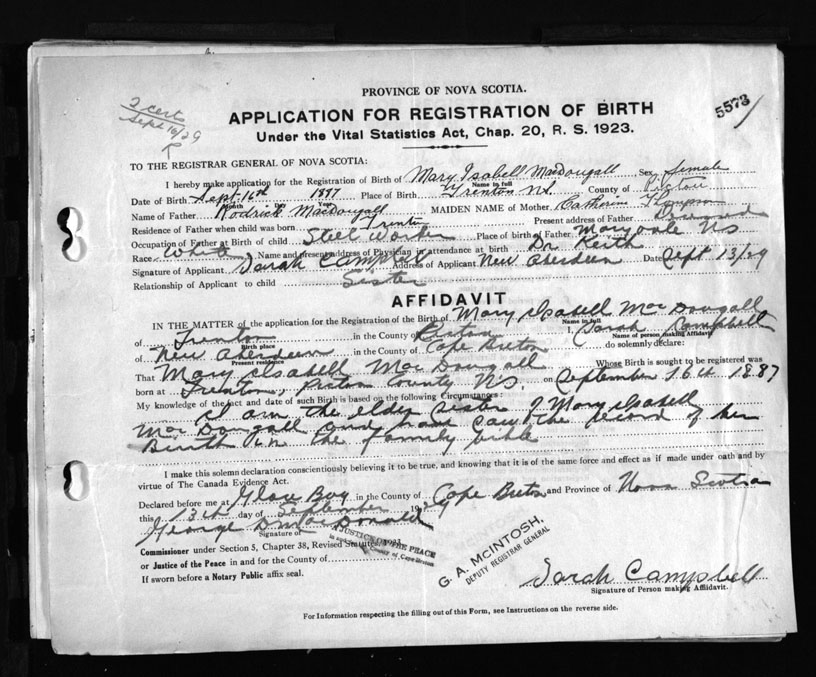 PROVINCE OF NOVA SCOTIA.
APPLICATION FOR REGISTRATION OF BIRTH
Under the Vital Statistics Act, Chap. 20, R. S. 1923.
5573
2 cert
Sept 16/29
TO THE REGISTRAR GENERAL OF NOVA SCOTIA:
I hereby make application for the Registration of Birth of Mary Isabell MacDougall Sex female
Name in full
Date of Birth Sept. 16th 1887 Place of Birth Trenton N.S. County of Pictou
Month
Name of Father Rodrick MacDougall MAIDEN NAME of Mother Catherine Thompson
Residence of Father when child was born Trenton Present address of Father Deceased
Occupation of Father at Birth of child Steel Worker Place of birth of Father Maryvale N S
Race White Name and present address of Physician in attendance at birth Dr. Keith
Signature of Applicant Sarah Campbell Address of Applicant New Aberdeen Date Sept 13/29
Relationship of Applicant to child Sister
AFFIDAVIT
IN THE MATTER of the application for the Registration of the Birth of Mary Isabell MacDougall
Name in full
of Trenton in the County of Pictou I, Sarah Campbell
Birth place
Name of person making Affidavit
of New Aberdeen in the County of Cape Breton do solemnly declare:
Present residence
That Mary Isabell MacDougall Whose Birth is sought to be registered was
born at Trenton, Pictou County N.S. on September 16th 1887
My knowledge of the fact and date of such Birth is based on the following Circumstances:
I am the elder sister of Mary Isabell
MacDougall and have saw the record of her
Birth in the family bible
I make this solemn declaration conscientiously believing it to be true, and knowing that it is of the same force and effect as if made under oath and by
virtue of The Canada Evidence Act.
Declared before me at Glace Bay in the County of Cape Breton and Province of Nova Scotia
this 13th day of September 1929
George D MacDonald
Signature of
A JUSTICE OF THE PEACE
in and for the County of Cape Breton
Commissioner under Section 5, Chapter 38, Revised Statutes, 1923
or Justice of the Peace in and for the County of
If sworn before a Notary Public affix seal.
G. A. McINTOSH,
DEPUTY REGISTRAR GENERAL
Sarah Campbell
Signature of Person making Affidavit.
For Information respecting the filling out of this Form, see Instructions on the reverse side.